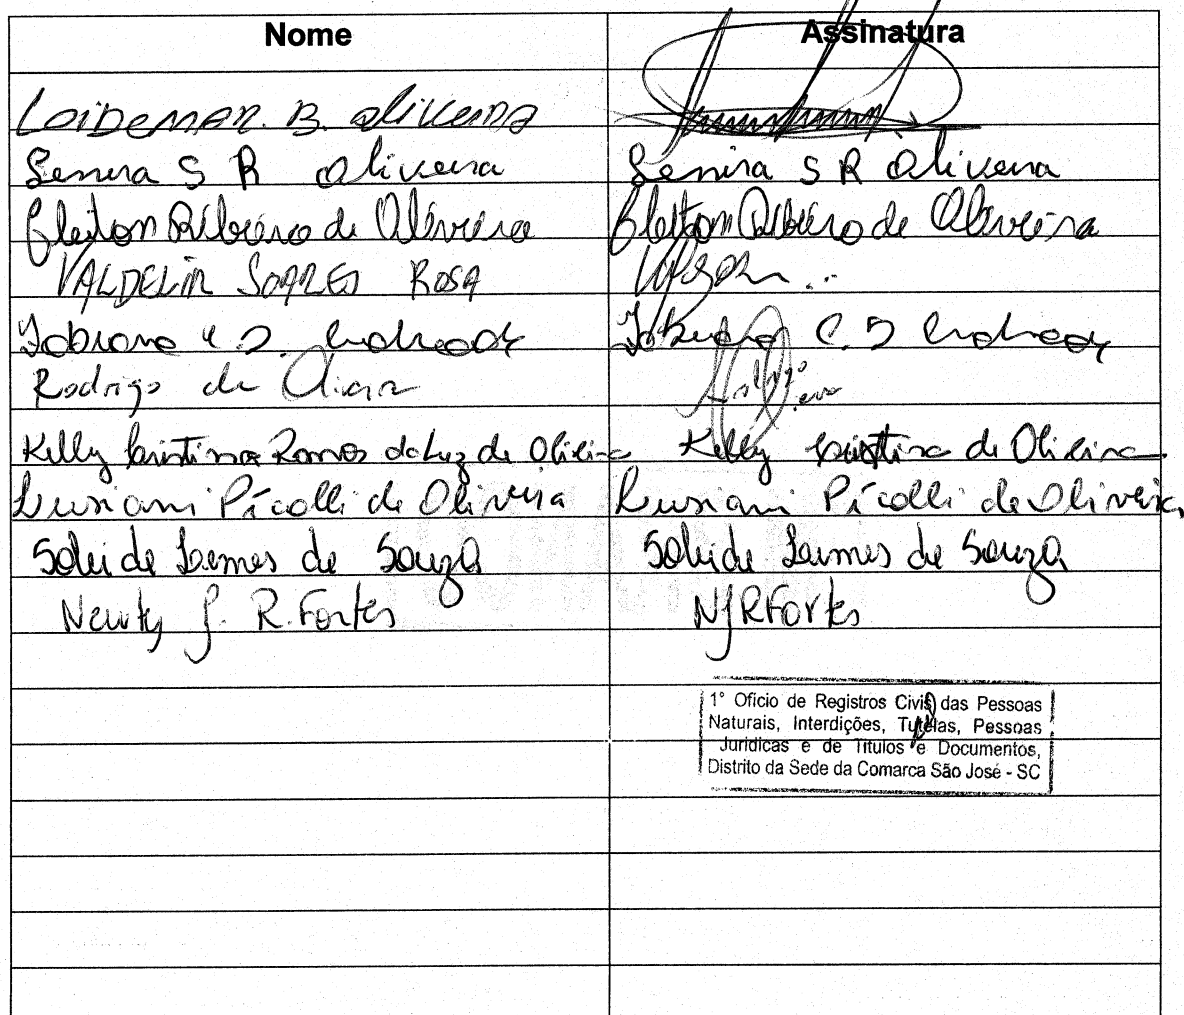 Nome Assinatura
Loidemar. B. Oliveira
Senira S R Oliveira Senira S R Oliveira
Cleiton Ribeiro de Oliveira Cleiton Ribeiro de Oliveira
VALDECIR SOARES ROSA
Fabiana C. D. Andrade Fabiana C. D Andrade
Rodrigo de
Kelly Cristina Ramos da Luz de Oliveira Kelly Cristina de Oliveira
Lusiani Picolli de Oliveira Lusiani Picolli de Oliveira
Soleide Lemes de Souza Soleide Lemes de Souza
J. R. Fortes NJRFortes
1° Oficio de Registros Civis das Pessoas
Naturais, Interdições, Tutelas, Pessoas
Jurídicas e de Títulos e Documentos,
Distrito da Sede da Comarca São José - SC